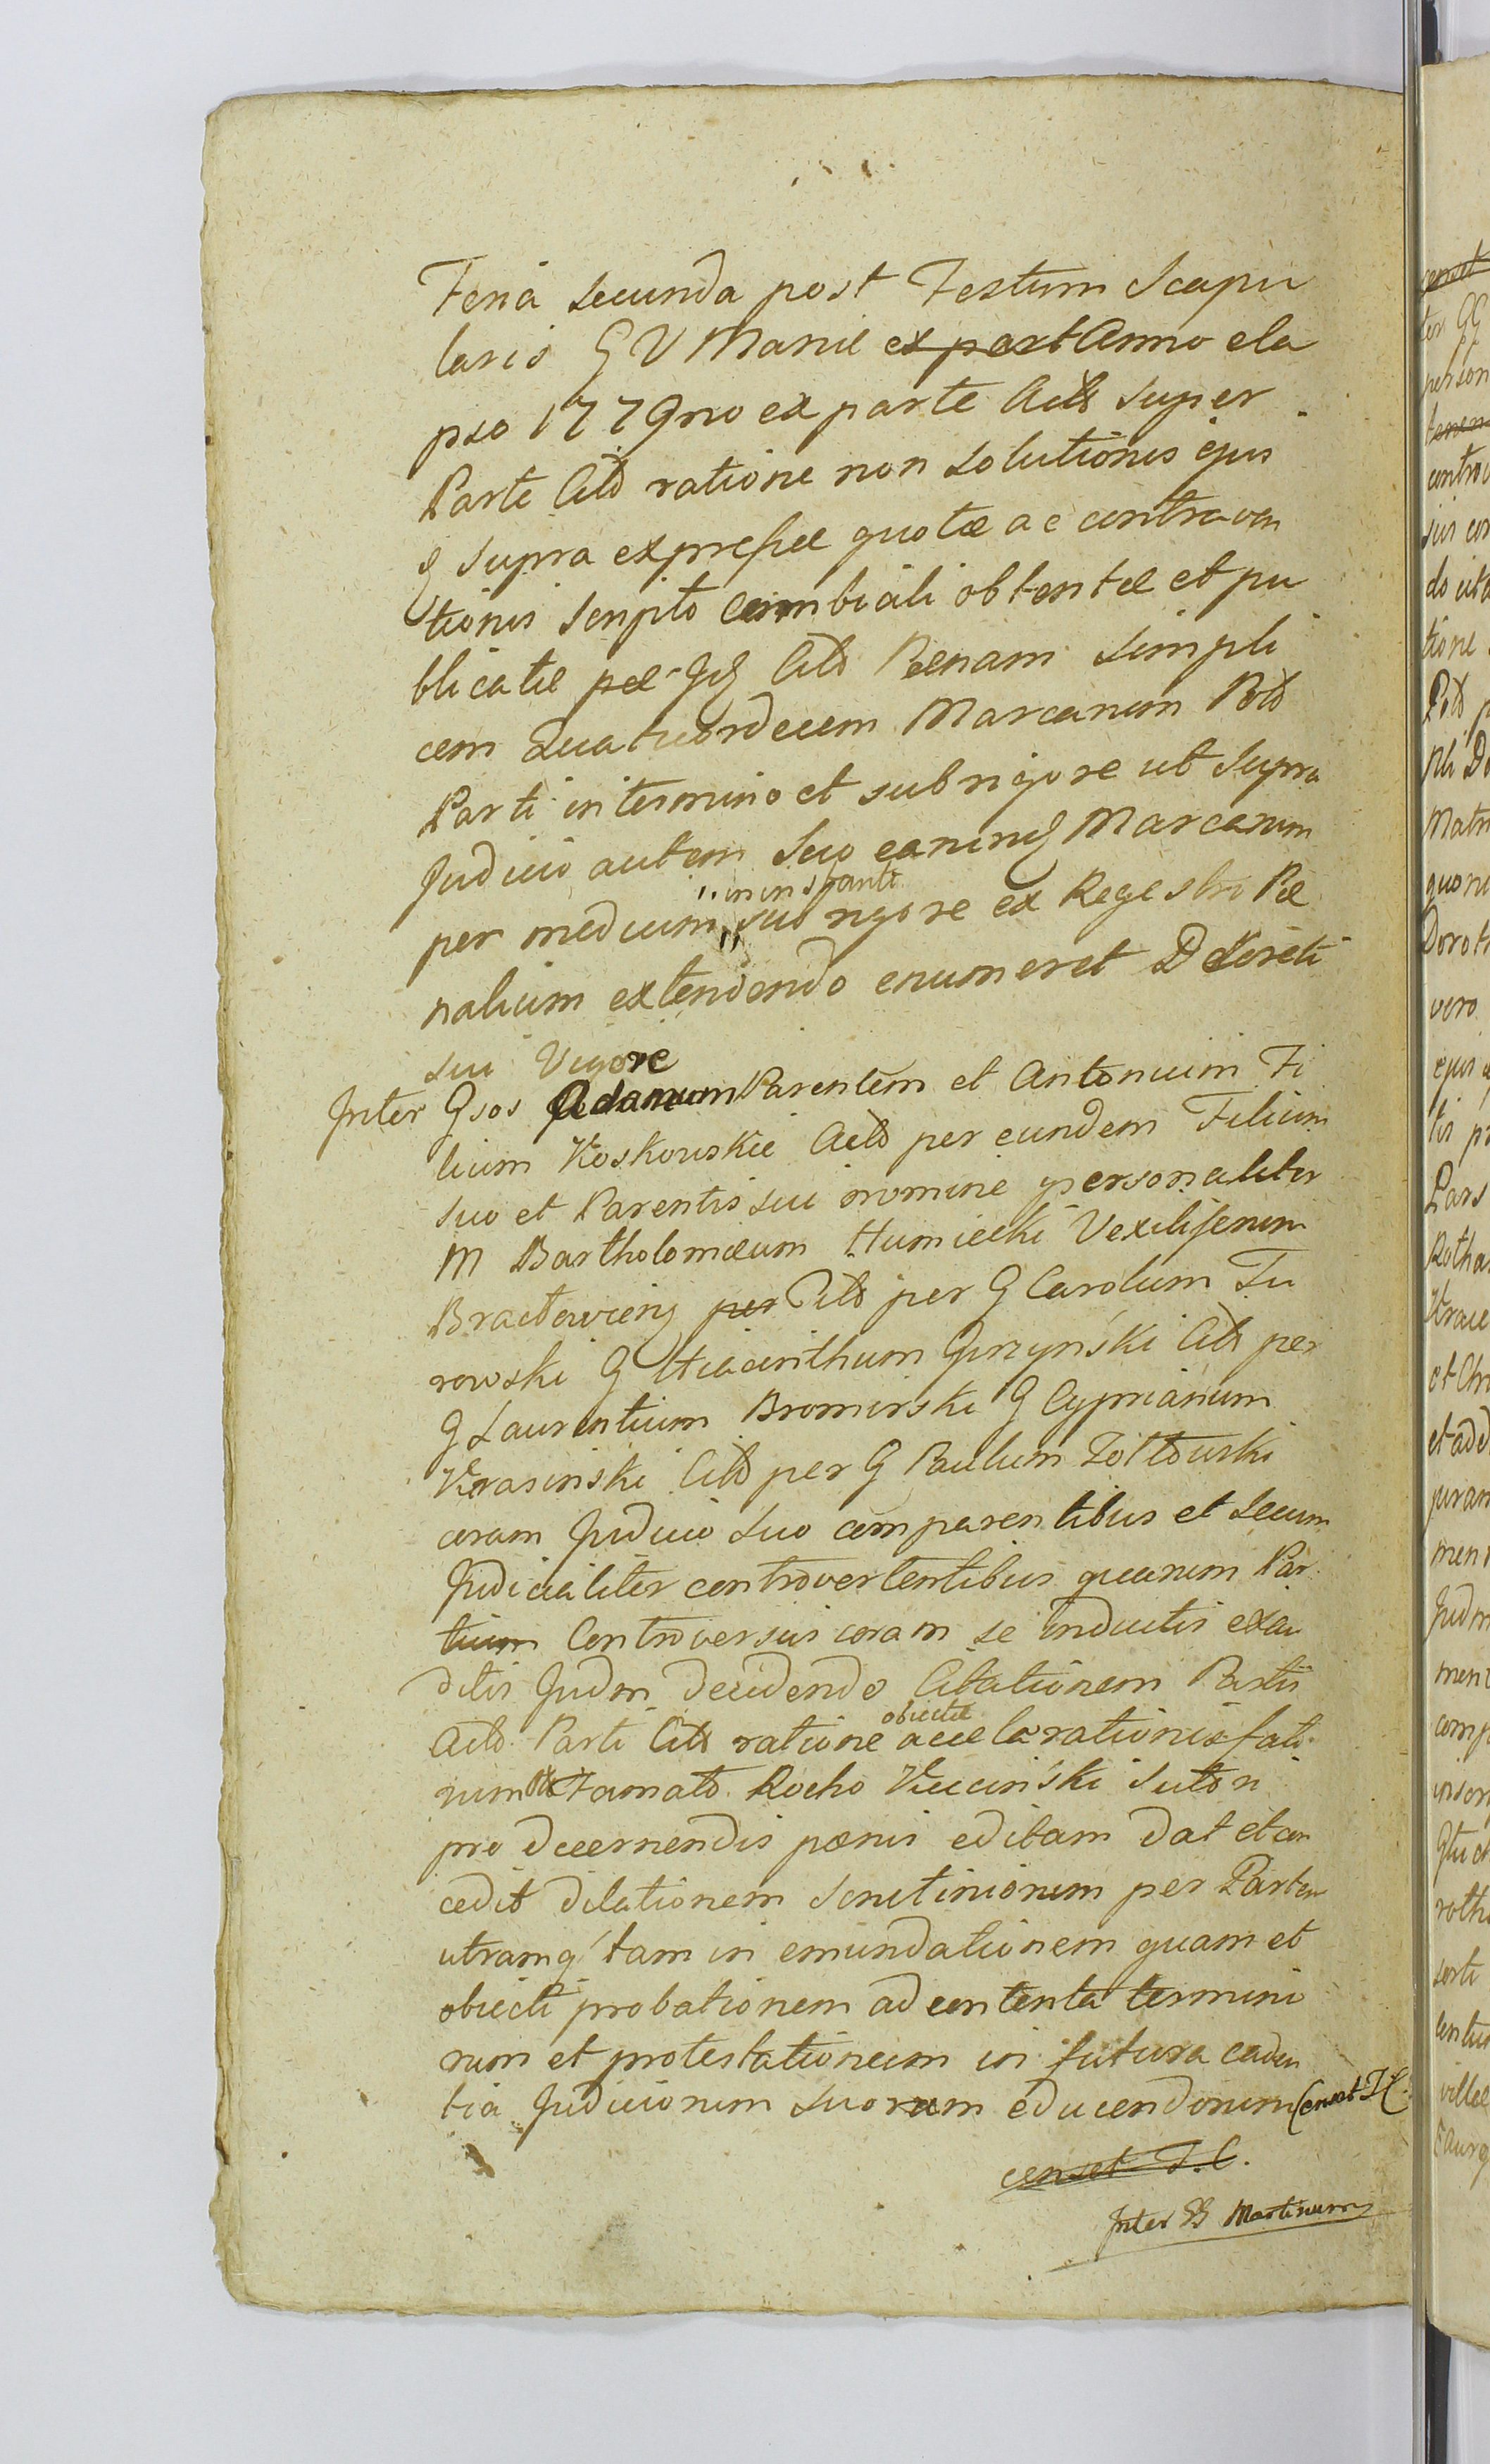 Feria secunda post Festum Scapu
laris B V Mariæ ex part Anno ela
pso 1779no ex parte Actt super
Parte Citt ratione non solutionis ejus
q supra expressæ quotæ ac contraven
tionis scripto Cambiali obtentæ et pu
blicatæ Citt Pænam simpli
cem Quatuordecem Marcarum Polo
Parti in termino et sub rigore ut supra
Judicio autem suo earumq Marcarum
in instanti
per medium suo rigore ex Regestro Pæ
nalium extendendo enumeret Decreti
sui Vigore
Inter Gsos Adamum Parentem et Antonium Fi
lium Koskowskie Actt per eundem Filium
suo et Parentis sui nomine personaliter
M Bartholomæum Humiecki Vexiliferum
Bractavieng per Citt per G Carolum Tu
rowski G Hiacinthum Jurzyński Citt per
G Laurentium Bromirski G Cyprianum
Krasinski Citt per G Paulum Żółtowski
coram Judicio suo comparentibus et secum
Judicialiter controvertentibus quarum Par
tium Controversiis coram se inductis exau
ditis Judm decidendo Citationem Partis
obiectæ
Actt Parti Citt ratione accelerationis fato
rum Famato Rocho Kuciński Sutori
pro decernendis pænis editam dat et con
cedit dilationem scrutiniorum per Partem
utramq tam in emundationem quam et
obiecti probationem ad contenta termino
rum et protestationum in futura caden
tia Judiciorum suorum educendorum Censet J C.
censet J. C.
Inter GG Martinum